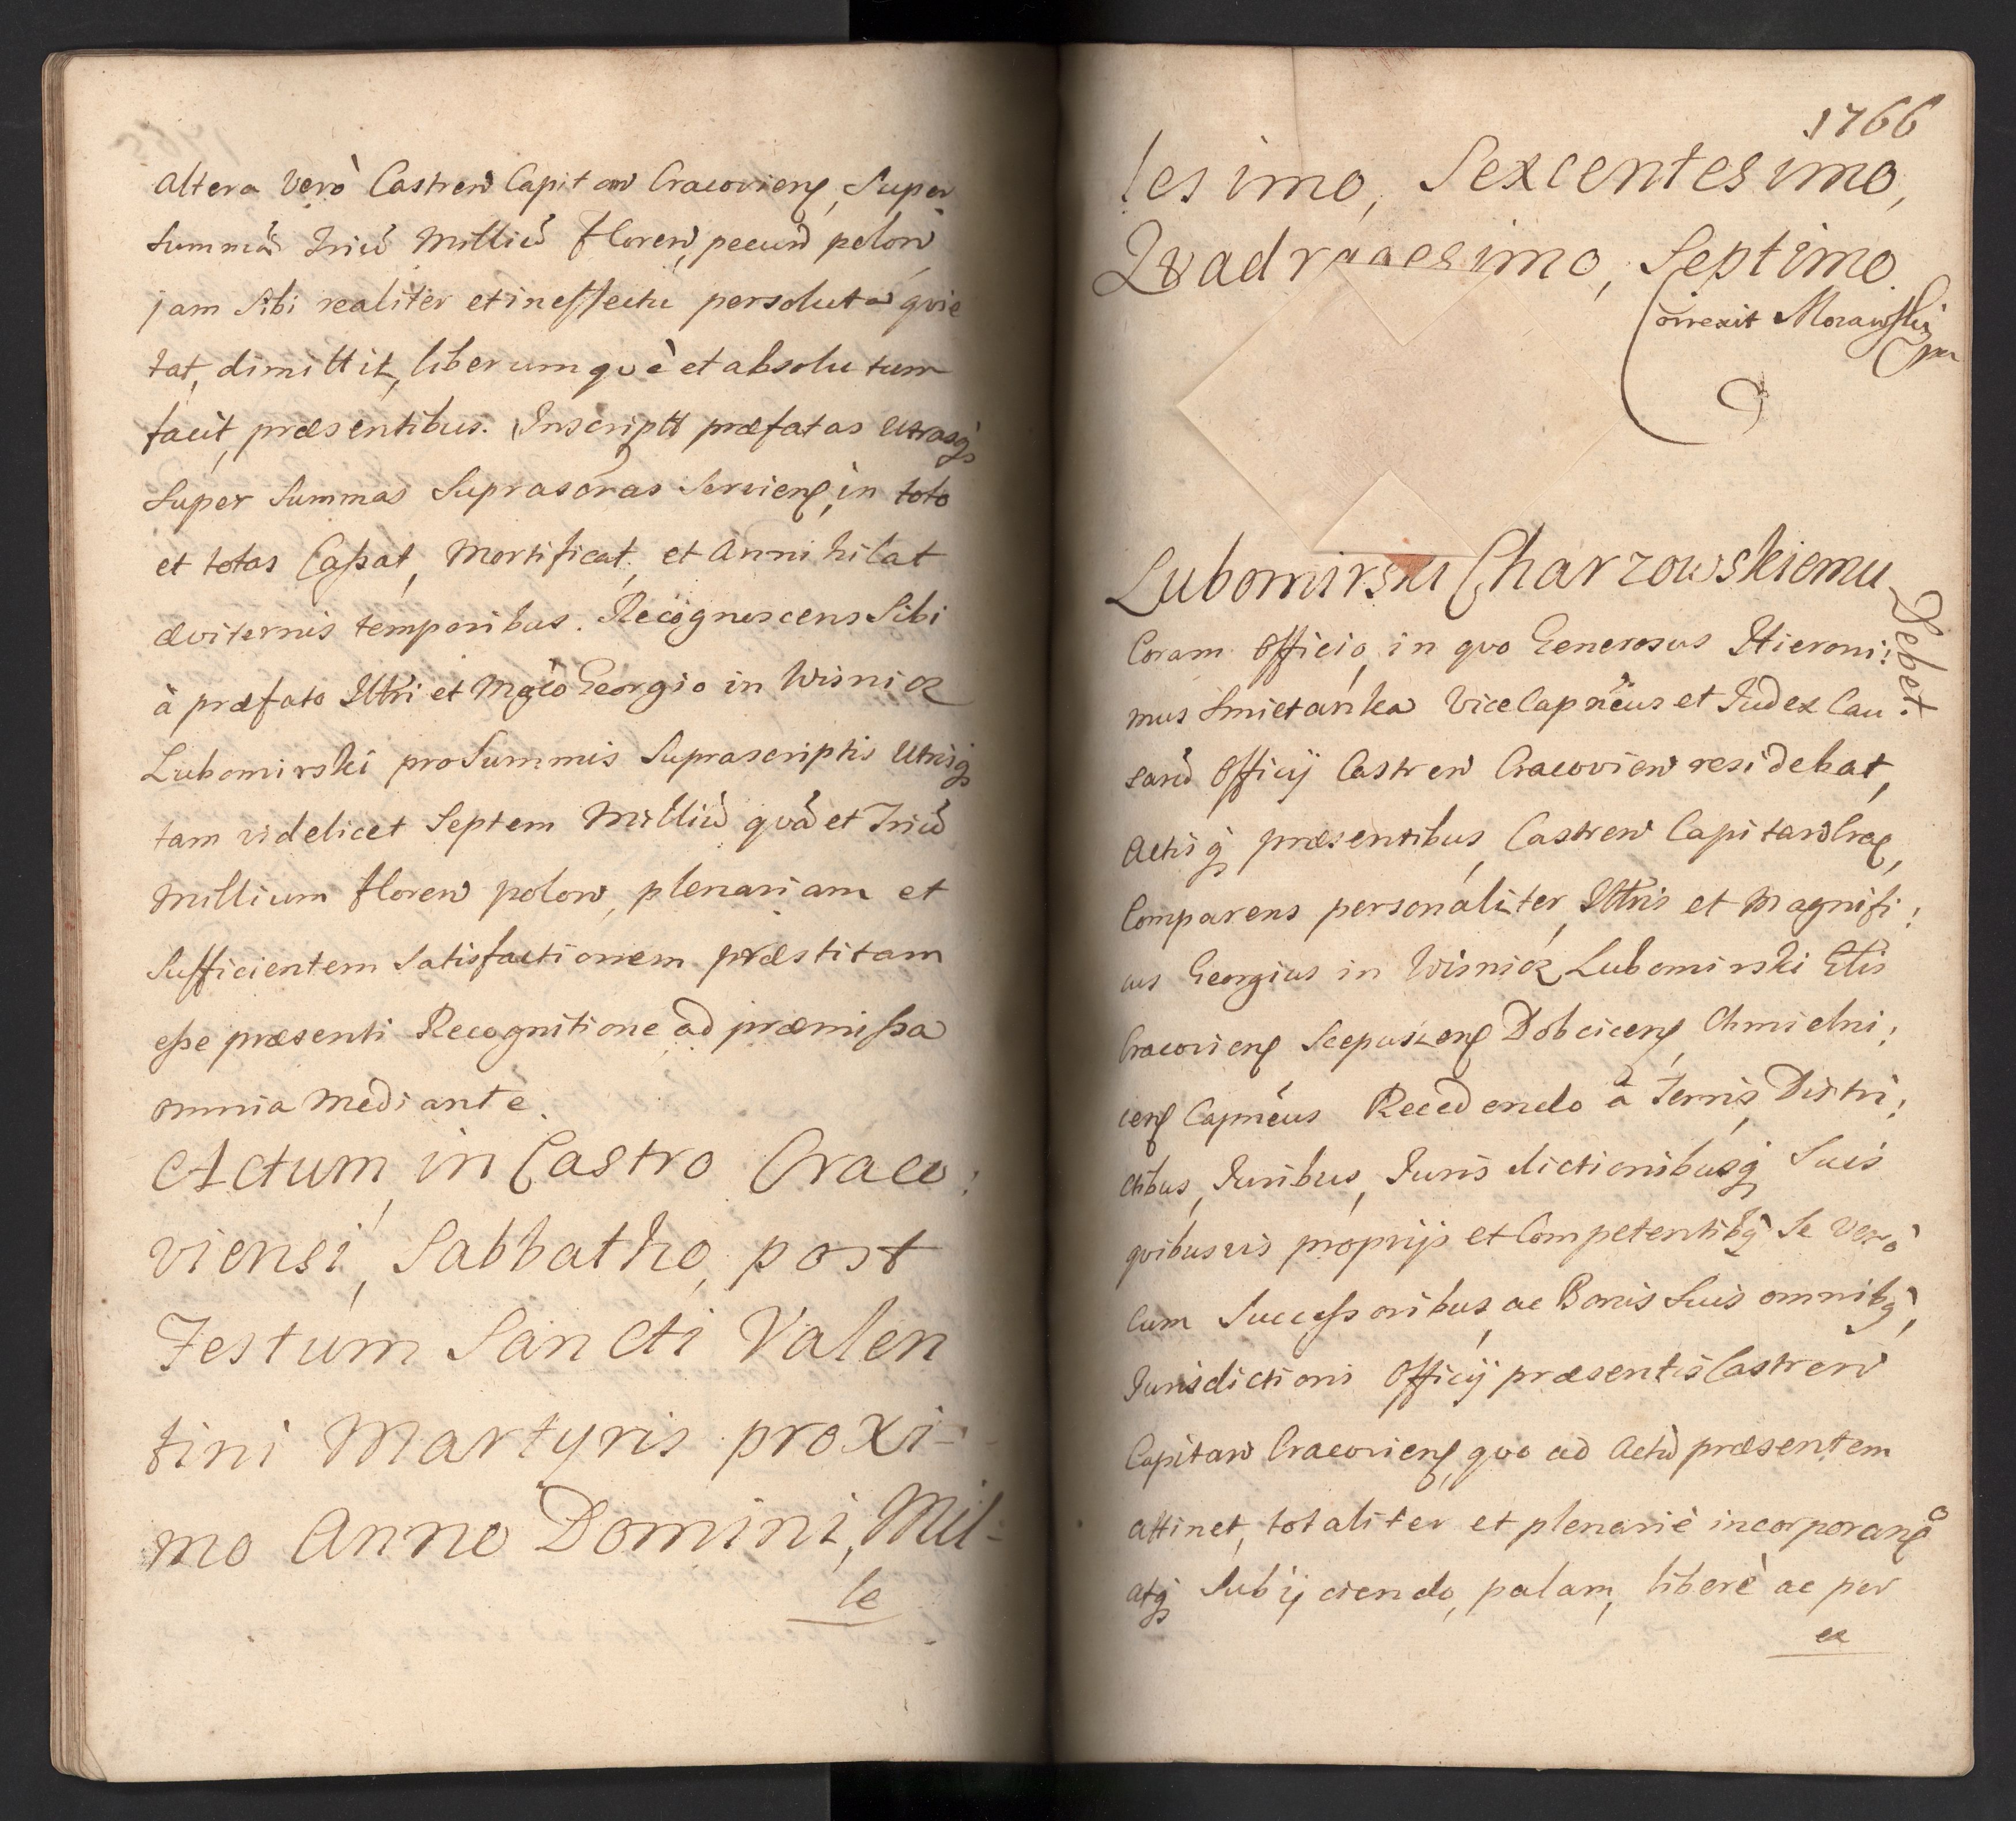 altera verò Castren Capitan Cracovien, Super
Summã Triũ Milliũ floren, pecun polon
jam sibi realiter et in effectu persoluta qvie
tat, dimittit, liberumqvè et absolutum
facit, præsentibus. Inscriptt præfatas utrasq;
Super Summas Suprascras Servien, in toto
et totas Caßat, Mortificat, et Annihilat
æviternis temporibus. Recognoscens Sibi
à præfato Illtri et Mgco Georgio in Wisnicz
Lubomirski pro Summis Suprascriptis utrisq;
tam videlicet Septem Milliũ qvã et Triũ
Millium floren polon, plenariam et
Sufficientem Satisfactionem præstitam
eße præsenti Recognitione ad præmißa
omnia mediante.
Actum, in Castro Craco:
viensi, Sabbatho, post
Festum Sancti Valen
tini Martyris proxi-
mo Anno Domini, Mil-
le
1766
lesimo, Sexcentesimo,
Qvadragesimo, Septimo.
Correxit Morawski
mp
Lubomirski Charzowskiemu
Debet
Coram Officio, in qvo Generosus Hieroni:
mus Smietanka ViceCapneus et Judex Cau:
sarũ Officij Castren Cracovien residebat,
Actisq; præsentibus, Castren Capitan Crac,
Comparens personaliter, Illtris et Magnifi:
cus Georgius in Wisnicz Lubomirski Etis
Cracovien Scepusien Dobcicen, Chmielni:
cen Capneus Recedendo à Terris, Distri:
ctibus, Juribus, Jurisdictionibusq; Suis
qvibusvis proprijs et Competentibq; Se verò
Cum Succeßoribus, ac Bonis Suis omnibq;,
Jurisdictioni Officij præsentis Castren
Capitan Cracovien, qvo ad Actũ præsentem
attinet, totaliter et plenariè incorporandο
atq; Subijciendo, palam, liberè ac per
ex